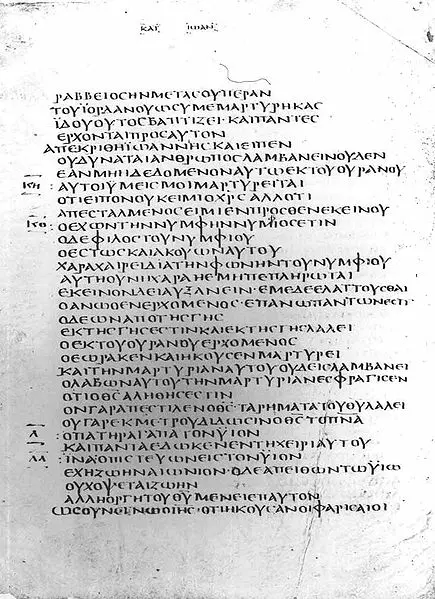 ΚΑΤ ΙΩΑΝ
ΡΑΒΒΕΙΟϹΗΝΜΕΤΑϹΟΥΠΕΡΑΝ
ΤΟΥΙΟΡΔΑΝΟΥΩϹΥΜΕΜΑΡΤΥΡΗΚΑϹ
ΪΔΟΥΟΥΤΟϹΒΑΠΤΙΖΕΙ·ΚΑΙΠΑΝΤΕϹ
ΕΡΧΟΝΤΑΙΠΡΟϹΑΥΤΟΝ
ΑΠΕΚΡΙΘΗΪΩΑΝΝΗϹΚΑΙΕΙΠΕΝ
ΟΥΔΥΝΑΤΑΙΑΝΘΡΩΠΟϹΛΑΜΒΑΝΕΙΝΟΥΔΕΝ
ΕΑΝΜΗΗΔΕΔΟΜΕΝΟΝΑΥΤΩΕΚΤΟΥΟΥΡΑΝΟΥ
:ΑΥΤΟΙΫΜΕΙϹΜΟΙΜΑΡΤΥΡΕΙΤΑΙ
ΟΤΙΕΙΠΟΝΟΥΚΕΙΜΙΟΧΡϹΑΛΛΟΤΙ
ΑΠΕϹΤΑΛΜΕΝΟϹΕΙΜΙΕΝΠΡΟϹΘΕΝΕΚΕΙΝΟΥ
:ΟΕΧΩΝΤΗΝΝΥΜΦΗΝΝΥΜΦΙΟϹΕϹΤΙΝ
ΟΔΕΦΙΛΟϹΤΟΥΝΥΜΦΙΟΥ
ΟΕϹΤΩϹΚΑΙΑΚΟΥΩΝΑΥΤΟΥ
ΧΑΡΑΧΑΙΡΕΙΔΙΑΤΗΝΦΩΝΗΝΤΟΥΝΥΜΦΙΟΥ
ΑΥΤΗΟΥΝΗΧΑΡΑΗΕΜΗΠΕΠΛΗΡΩΤΑΙ
ΕΚΕΙΝΟΝΔΕΙΑΥΞΑΝΕΙΝ·ΕΜΕΔΕΕΛΑΤΤΟΥϹΘΑΙ
ΟΑΝΩΘΕΝΕΡΧΟΜΕΝΟϹ·ΕΠΑΝΩΠΑΝΤΩΝΕϹΤΙ
ΟΔΕΩΝΑΠΟΤΗϹΓΗϹ
ΕΚΤΗϹΓΗϹΕϹΤΙΝΚΑΙΕΚΤΗϹΓΗϹΛΑΛΕΙ
ΟΕΚΤΟΥΟΥΡΑΝΟΥΕΡΧΟΜΕΝΟϹ
ΟΕΩΡΑΚΕΝΚΑΙΗΚΟΥϹΕΝΜΑΡΤΥΡΕΙ
ΚΑΙΤΗΝΜΑΡΤΥΡΙΑΝΑΥΤΟΥΟΥΔΕΙϹΛΑΜΒΑΝΕΙ
ΟΛΑΒΩΝΑΥΤΟΥΤΗΝΜΑΡΤΥΡΙΑΝΕϹΦΡΑΓΙϹΕΝ
ΟΤΙΟΘϹΑΛΗΘΗϹΕϹΤΙΝ
ΟΝΓΑΡΑΠΕϹΤΙΛΕΝΟΘϹ·ΤΑΡΗΜΑΤΑΤΟΥΘΥΛΑΛΕΙ
ΟΥΓΑΡΕΚΜΕΤΡΟΥΔΙΔΩϹΙΝΟΘϹΤΟΠΝΑ
Λ :ΟΠΑΤΗΡΑΓΑΠΑΤΟΝΫΙΟΝ
ΚΑΙΠΑΝΤΑΕΔΩΚΕΝΕΝΤΗΧΕΙΡΙΑΥΤΟΥ
ΛΑ :ΪΝΑΟΠΙϹΤΕΥΩΝΕΙϹΤΟΝΫΙΟΝ
ΕΧΗΖΩΗΝΑΙΩΝΙΟΝ·ΟΔΕΑΠΕΙΘΩΝΤΩΫΙΩ
ΟΥΚΟΨΕΤΑΙΖΩΗΝ
ΑΛΛΗΟΡΓΗΤΟΥΘΥΜΕΝΕΙΕΠΑΥΤΟΝ
ΩϹΟΥΝΕΓΝΩΟΙΗϹ·ΟΤΙΗΚΟΥϹΑΝΟΙΦΑΡΙϹΑΙΟΙ